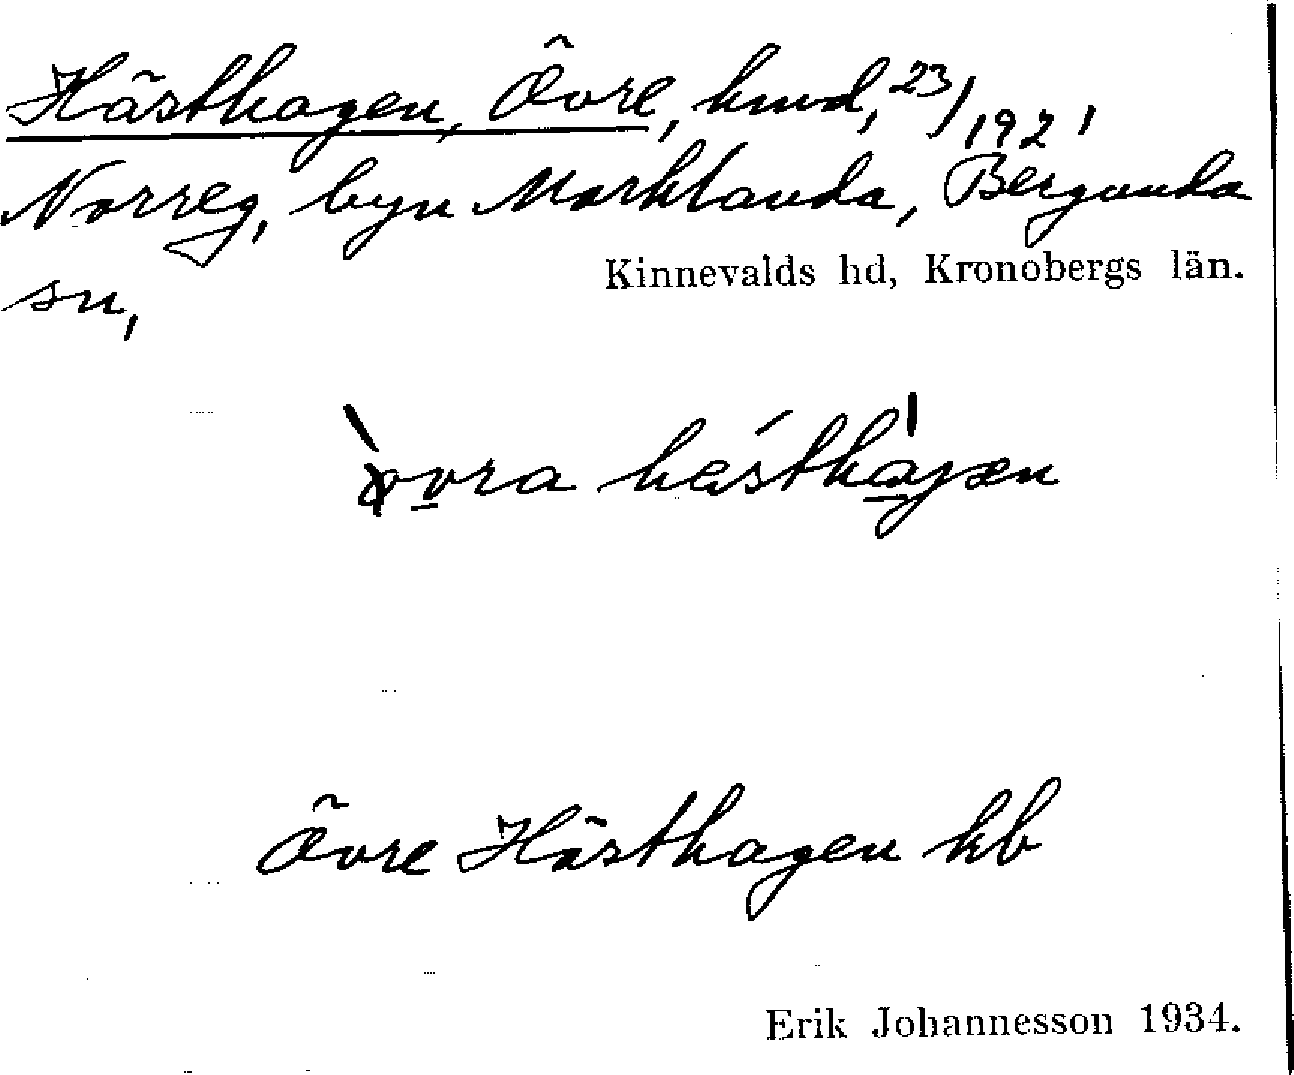 Hästhagen, Övre, hmd, 23/192 1
Norreg, byn Marklanda, Bergunda
sn,
Kinnevalds hd, Kronobergs län.
hästhagen
Övre Hästhagen kb
Erik Johannesson 1934.